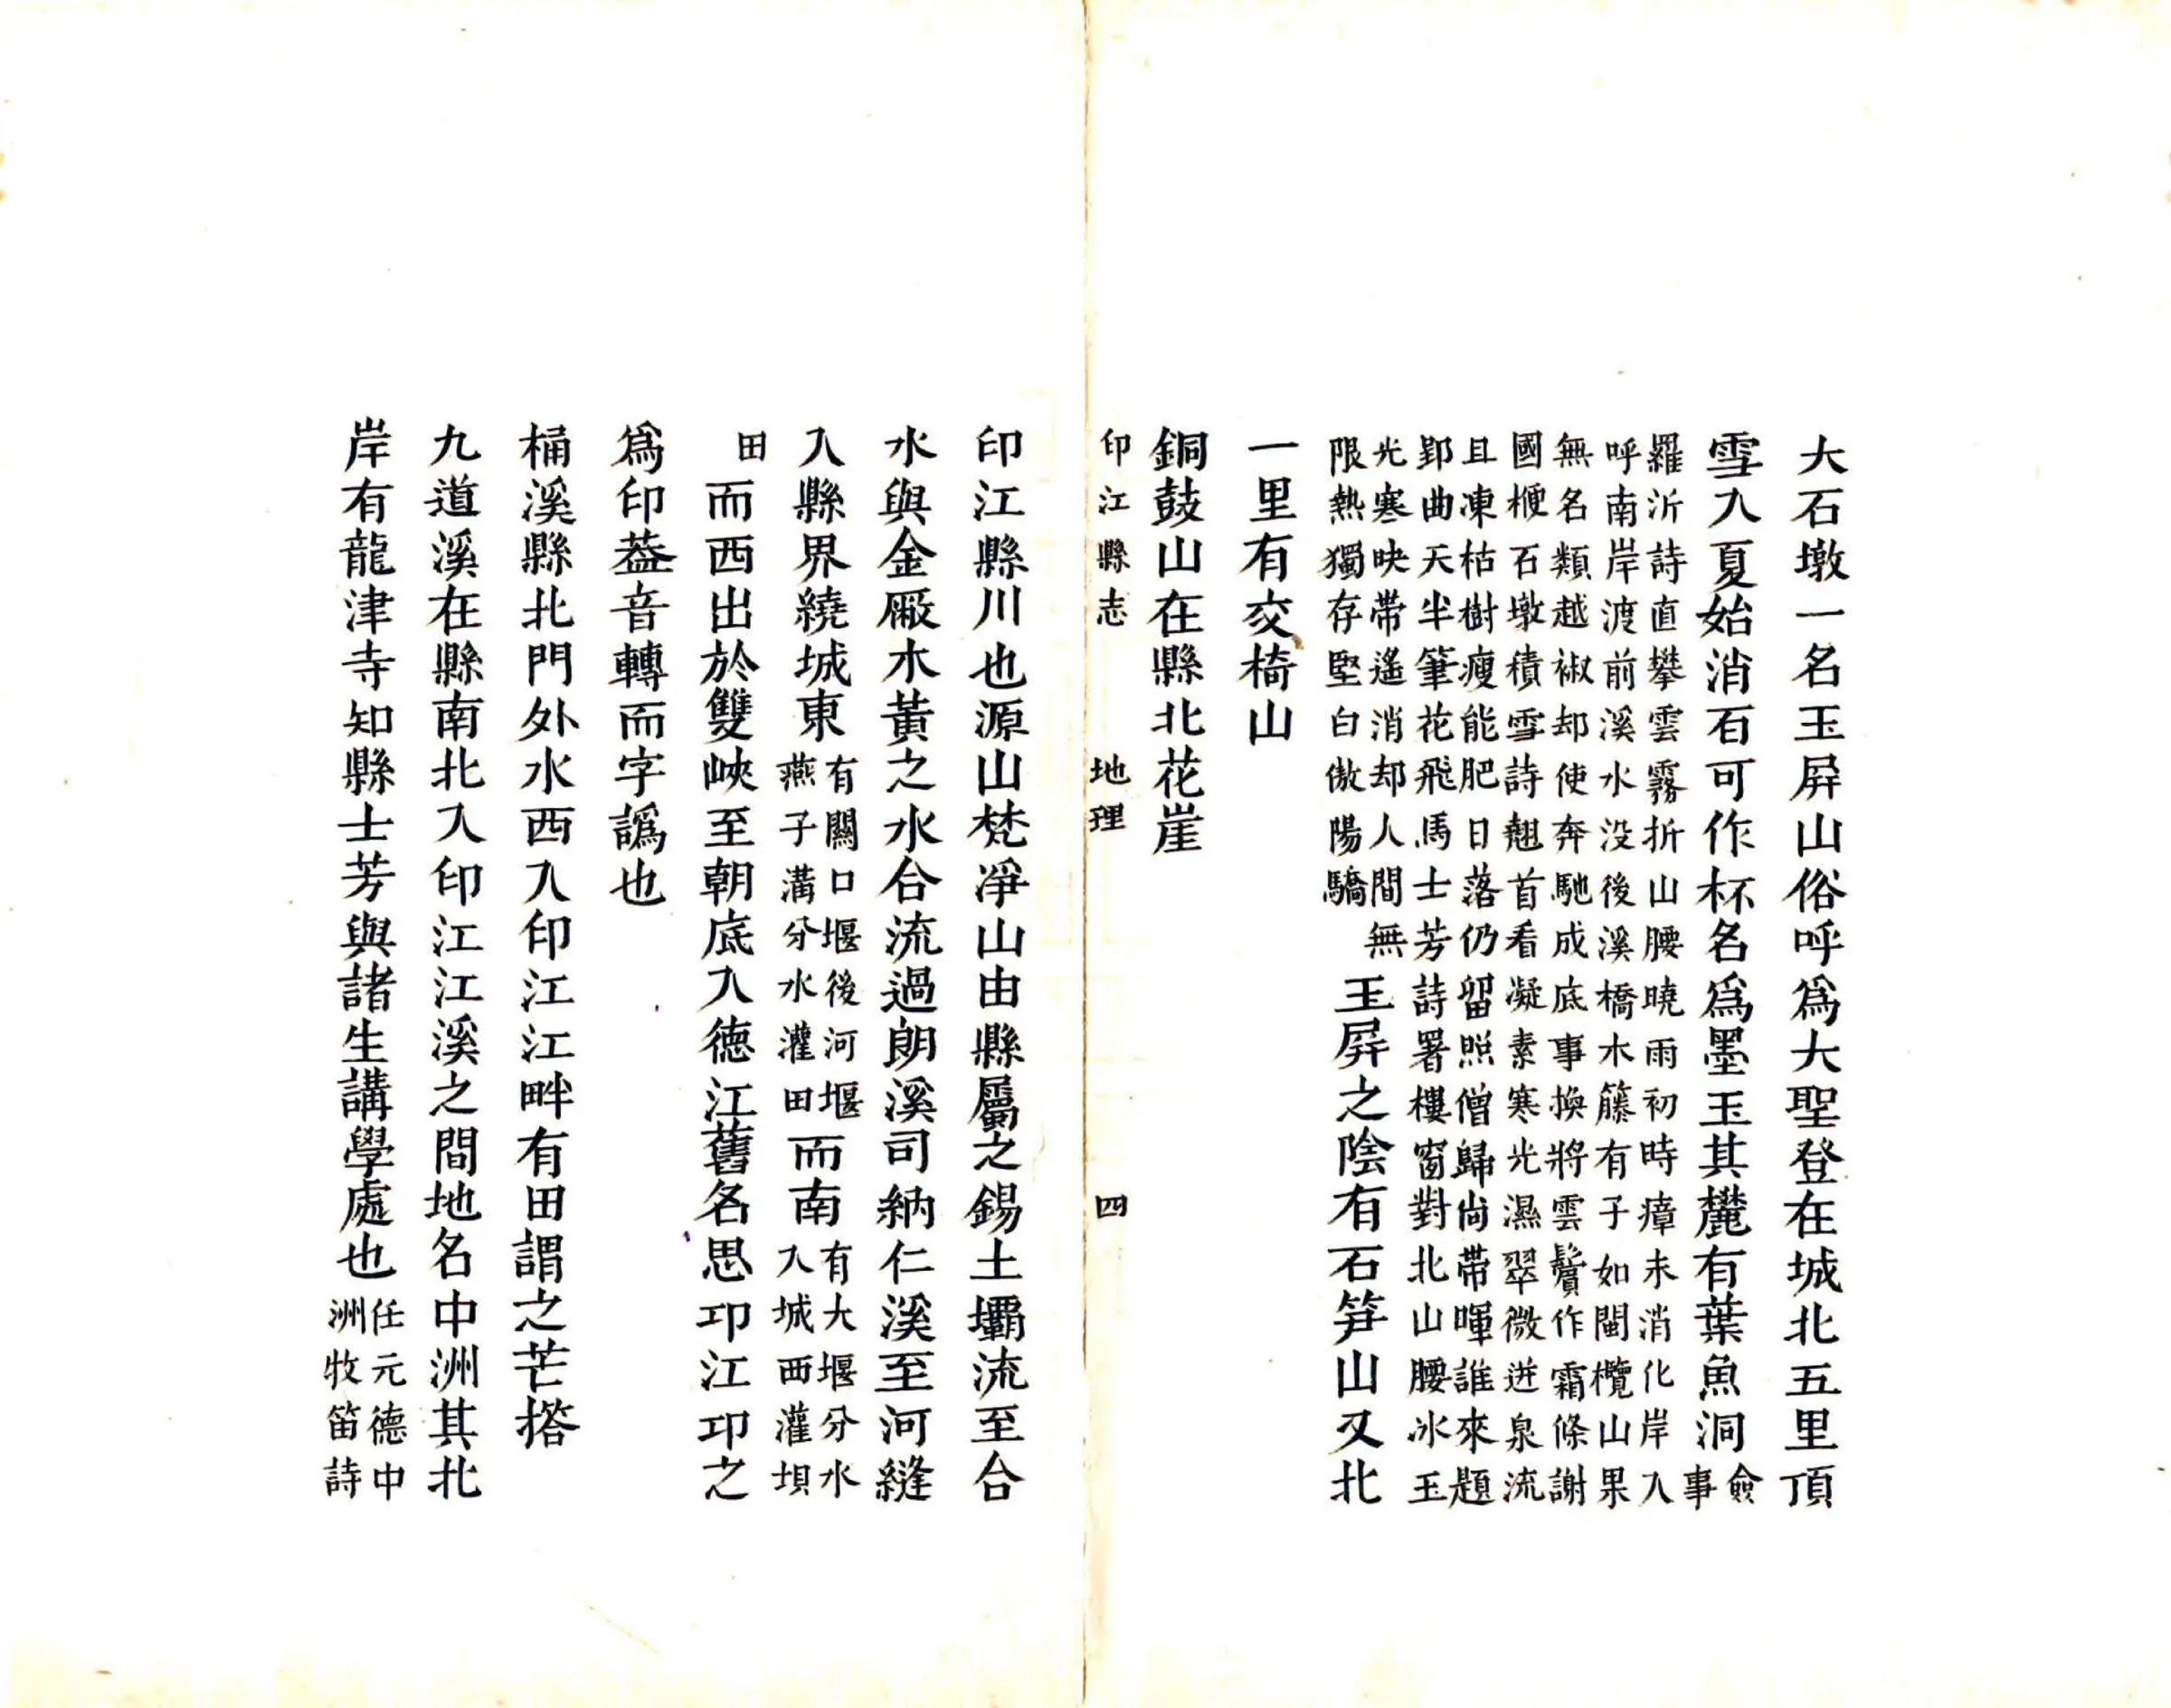 大石墩一名玉屛山俗呼爲大聖登在城北五里頂
雪入夏始消石可作杯名爲墨玉其麓有葉魚洞僉
事
羅沂詩直攀雲霧折山腰曉雨初時瘴未消化岸入
呼南岸渡前溪水没後溪橋木籐有子如閩欖山果
無名類越椒却使奔馳成底事換將雲鬢作霜條謝
國梗石墩積雪詩翹首看凝素寒光濕翠微迸泉流
且凍枯樹瘦能肥日落仍留照僧歸尙帶暉誰來題
郢曲天半筆花飛馬士芳詩署樓窗對北山腰冰玉
光寒映帶遙消却人間無
限熱獨存堅白傲陽驕
玉屛之陰有石笋山又北
一里有交椅山
銅鼓山在縣北花崖
印江縣志 地理 四
印江縣川也源山梵淨山由縣屬之錫土壩流至合
水與金厰木黃之水合流過朗溪司納仁溪至河縫
入縣界繞城東
有關口堰後河堰
燕子溝分水灌田
而南
有大堰分水
入城西灌垻
田
而西出於雙峽至朝底入德江舊名思卭江卭之
爲印葢音轉而字譌也
桶溪縣北門外水西入印江江畔有田謂之芒撘
九道溪在縣南北入印江江溪之間地名中洲其北
岸有龍津寺知縣士芳與諸生講學處也
任元德中
洲牧笛詩